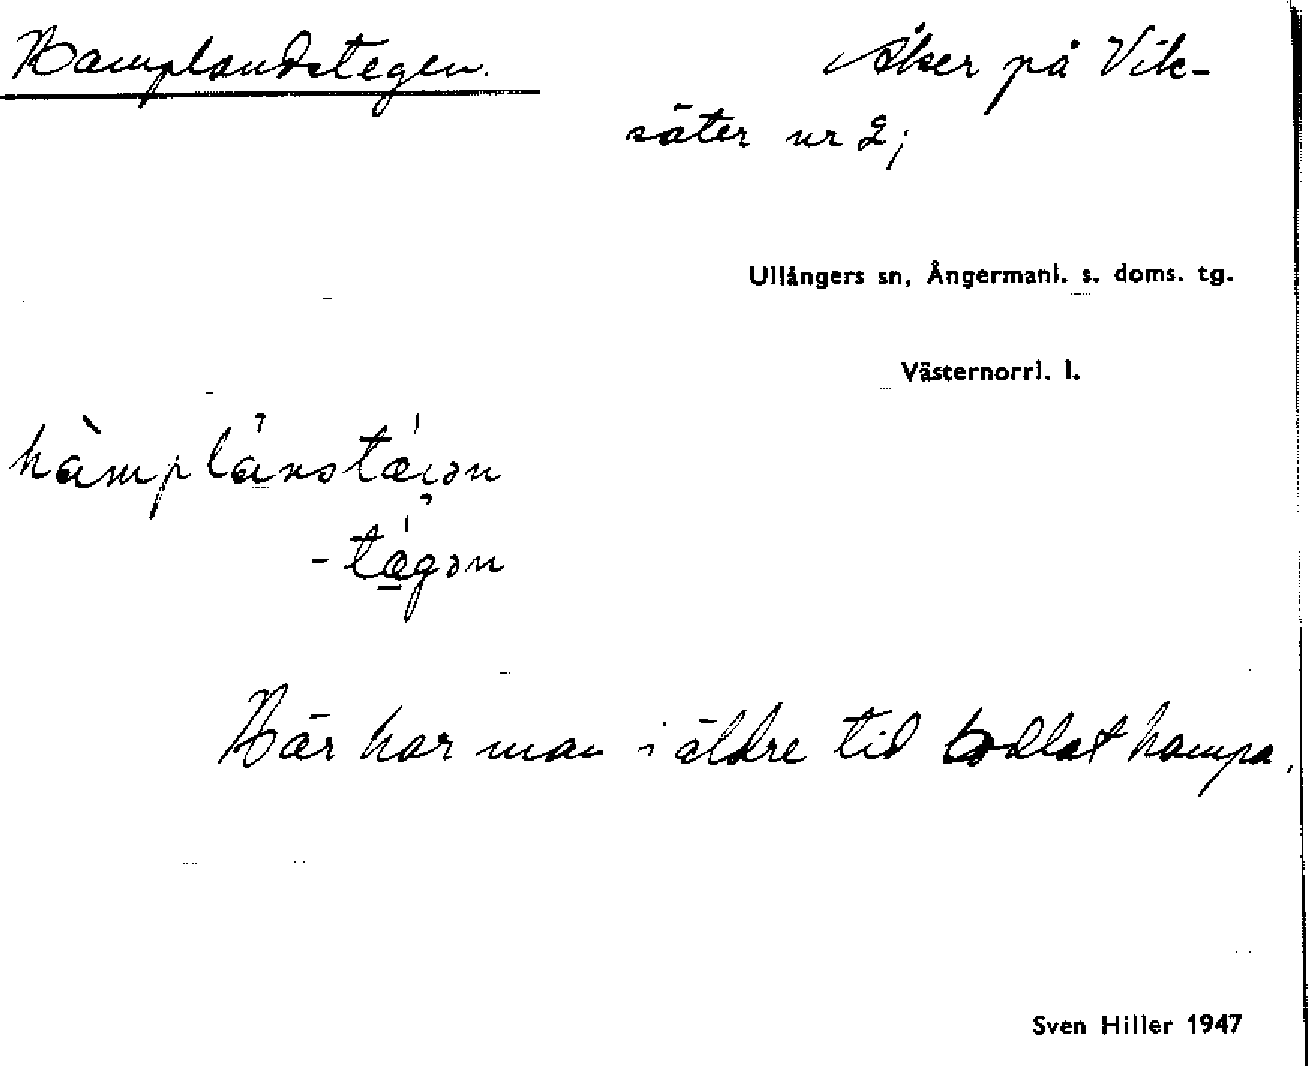 Hamplandstegen.
Åker på Vik-
säter nr 2;
Ullångers sn, Ångermanl. s. doms. tg.
Västernorrl. l.
Här har man i äldre tid odlat hampa.
Sven Hiller 1947